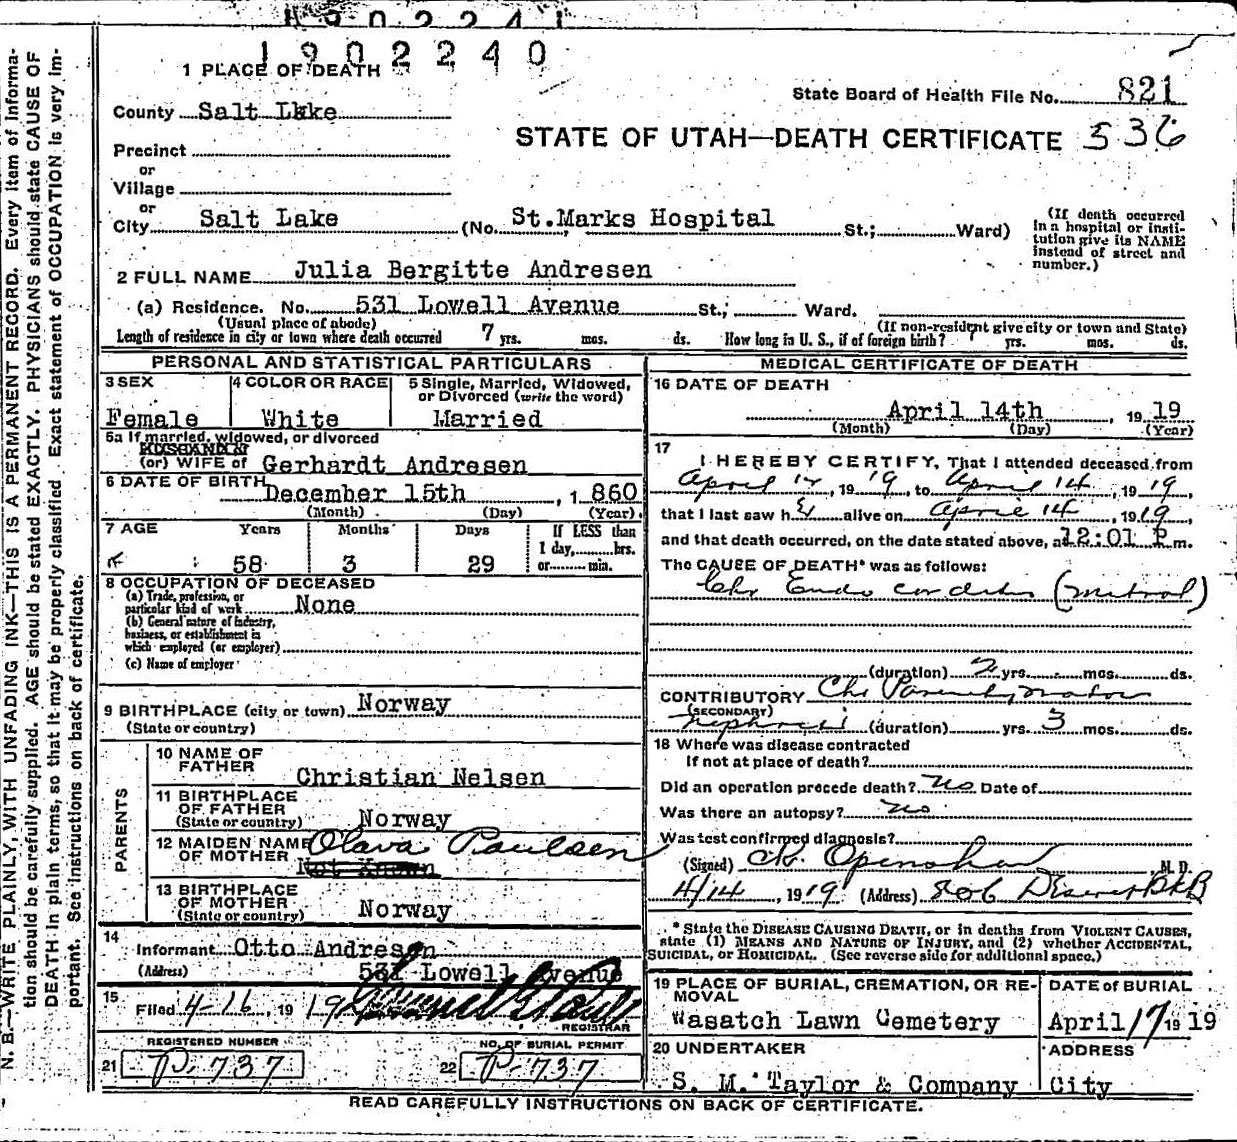 1902240
1902240
1 PLACE OF DEATH
State Board of Health File No. 821
County Salt Lake
STATE OF UTAH—DEATH CERTIFICATE 536
Precinct
or
Village
or
City Salt Lake (No. St.Marks Hospital St.; Ward)
(If death occurred in a hospital or institution give its NAME instead of street and number.)
2 FULL NAME Julia Bergitte Andresen
(a) Residence. No. 531 Lowell Avenue St., Ward.
(Usual place of abode) (If non-resident give city or town and State)
Length of residence in city or town where death occurred 7 yrs. mos. ds. How long in U. S., if of foreign birth? yrs. mos. ds.
PERSONAL AND STATISTICAL PARTICULARS
3 SEX 4 COLOR OR RACE 5 Single, Married, Widowed, or Divorced (write the word)
Female White Married
5a If married, widowed, or divorced
HUSBAND of
(or) WIFE of Gerhardt Andresen
6 DATE OF BIRTH December 15th, 1860
(Month) (Day) (Year)
7 AGE Years Months Days If LESS than
58 3 29 1 day, hrs.
or min.
8 OCCUPATION OF DECEASED
(a) Trade, profession, or
particular kind of work None
(b) General nature of industry,
business, or establishment in
which employed (or employer)
(c) Name of employer
9 BIRTHPLACE (city or town) Norway
(State or country)
PARENTS
10 NAME OF
FATHER Christian Nelsen
11 BIRTHPLACE
OF FATHER
(State or country) Norway
12 MAIDEN NAME
OF MOTHER Olava Paulsen
Not Known
13 BIRTHPLACE
OF MOTHER
(State or country) Norway
14
Informant Otto Andresen
(Address) 531 Lowell Avenue
15
Filed 4-16, 19 19
REGISTRAR
REGISTERED NUMBER NO. OF BURIAL PERMIT
21 P-737 22 P-737
MEDICAL CERTIFICATE OF DEATH
16 DATE OF DEATH
April 14th 1919
(Month) (Day) (Year)
17
I HEREBY CERTIFY, That I attended deceased from
April 12, 1919, to April 14, 1919,
that I last saw her alive on April 14, 1919,
and that death occurred, on the date stated above, at 12:01 P.m.
The CAUSE OF DEATH* was as follows:
Chr Endo carditis (mitral)
(duration) 2 yrs. mos. ds.
CONTRIBUTORY Chr Parenchymatous
(SECONDARY)
Nephritis (duration) yrs. 3 mos. ds.
18 Where was disease contracted
If not at place of death?
Did an operation precede death? no Date of
Was there an autopsy? no
Was test confirmed diagnosis?
(Signed) Openshaw M. D.
4/14, 1919 (Address) 806 Deseret Bk B
* State the DISEASE CAUSING DEATH, or in deaths from VIOLENT CAUSES,
state (1) MEANS AND NATURE OF INJURY, and (2) whether ACCIDENTAL,
SUICIDAL, or HOMICIDAL. (See reverse side for additional space.)
19 PLACE OF BURIAL, CREMATION, OR REMOVAL DATE of BURIAL
Wasatch Lawn Cemetery April 17 1919
20 UNDERTAKER ADDRESS
S. M. Taylor & Company City
READ CAREFULLY INSTRUCTIONS ON BACK OF CERTIFICATE.
N. B.—WRITE PLAINLY, WITH UNFADING INK—THIS IS A PERMANENT RECORD. Every item of informa-
tion should be carefully supplied. AGE should be stated EXACTLY. PHYSICIANS should state CAUSE OF
DEATH in plain terms, so that it may be properly classified. Exact statement of OCCUPATION is very im-
portant. See instructions on back of certificate.